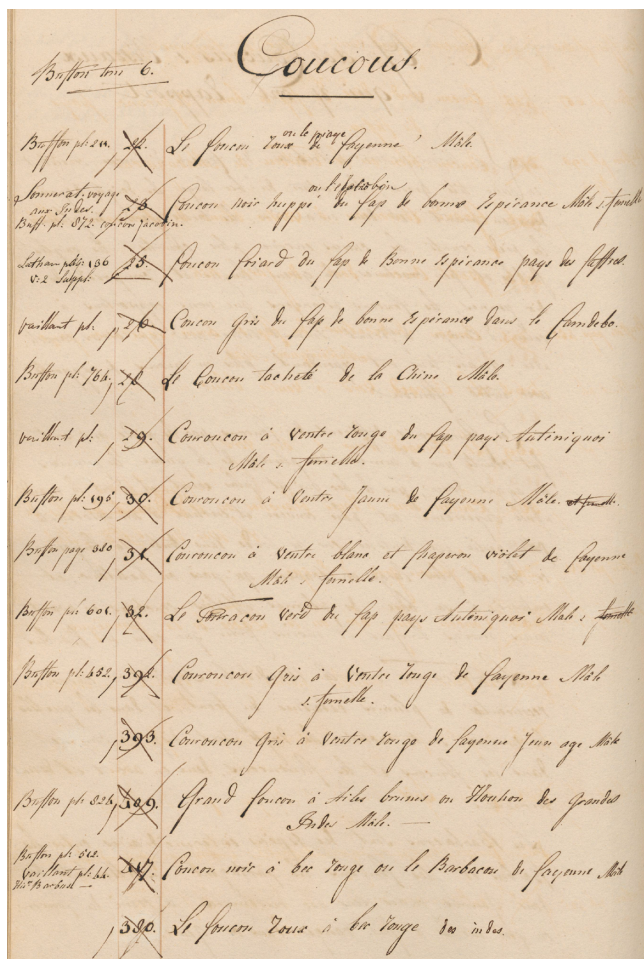 Coucous.
Buffon tom 6.
ou le piaye
Buffon pl: 211. 22. Le Coucou roux de Cayenne Mâle.
Sonnerat. voyage ou le jacobin
aux Indes. 23. Coucou noir huppé du Cap de bonne Espérance Mâle & femelle
Buff. pl: 872. coucou jacobin.
Latham 25. Coucou Criard du Cap de Bonne Espérance pays des Caffres.
v: 2 Suppl:
vaillant pl: 26. Coucou Gris du Cap de bonne Espérance dans le Camdebo.
Buffon pl: 764. Le Coucou tacheté de la Chine Mâle.
vaillant pl: 29. Couroucou à Ventre rouge du Cap pays Auteniquoi
Mâle & femelle.
Buffon pl: 195. 30. Couroucou à Ventre Jaune de Cayenne Mâle. et femelle.
Buffon page 380 31. Couroucou à Ventre blanc et Chaperon violet de Cayenne
Mâle & femelle.
Buffon pl: 601. 32. Le Touracou verd du Cap pays Auteniquoi Mâle & femelle
Buffon pl: 452. 392. Couroucou Gris à Ventre rouge de Cayenne Mâle
& femelle.
393. Couroucou Gris à Ventre rouge de Cayenne Jeune age Mâle
Buffon pl: 824. Grand Coucou à Ailes brunes ou Houhou des Grandes
Indes Mâle. —
Buffon pl: 512.
vaillant pl: 44. 417. Coucou noir à bec rouge ou le Barbacou de Cayenne Mâle
Barbus —
380. Le Coucou Roux à bec rouge des indes.